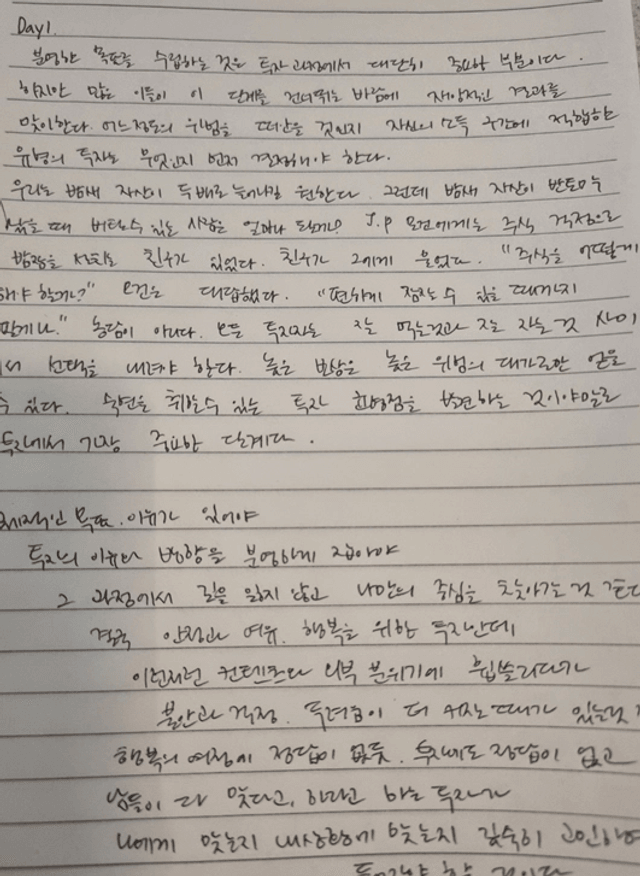 Day1.
분명한 목표를 수립하는 것은 투자 과정에서 대단히 중요한 부분이다.
하지만 많은 이들이 이 단계를 건너뛰는 바람에 재앙적인 결과를
맞이한다. 어느정도의 위험을 떠안을 것인지 자신의 소득 구간에 적합한
유형의 투자는 무엇인지 먼저 결정해야 한다.
우리는 밤새 자산이 두배로 늘어나길 원한다. 그런데 밤새 자산이 반토막
났을 때 버틸 수 있는 사람은 얼마나 될까? J.P 모건에게는 주식 걱정으로
밤잠을 설치는 친구가 있었다. 친구가 그에게 물었다. "주식을 어떻게
해야 할까?" 모건은 대답했다. "편하게 잠잘 수 있을 때까지
팔게나." 농담이 아니다. 모든 투자자는 잘 먹는것과 잘 자는 것 사이
서 선택을 내려야 한다. 높은 보상은 높은 위험의 대가로만 얻을
수 있다. 숙면을 취할수 있는 투자 균형점을 발견하는 것이야말로
투자에서 가장 중요한 단계다.
체적인 목표. 이유가 있어야
투자의 이유와 방향을 분명하게 잡아야
그 과정에서 길을 잃지 않고 나만의 중심을 찾아가는 것 같다
결국 안정과 여유. 행복을 위한 투자인데
이런저런 컨텐츠와 외부 분위기에 휩쓸리다가
불안과 걱정. 두려움이 더 커지는 때가 있는것
행복의 여정에 정답이 없듯. 투자에도 정답이 없고
남들이 다 맞다고, 하라고 하는 투자가
나에게 맞는지 내상황에 맞는지 깊숙히 고민하여
투자해야 할 것이다